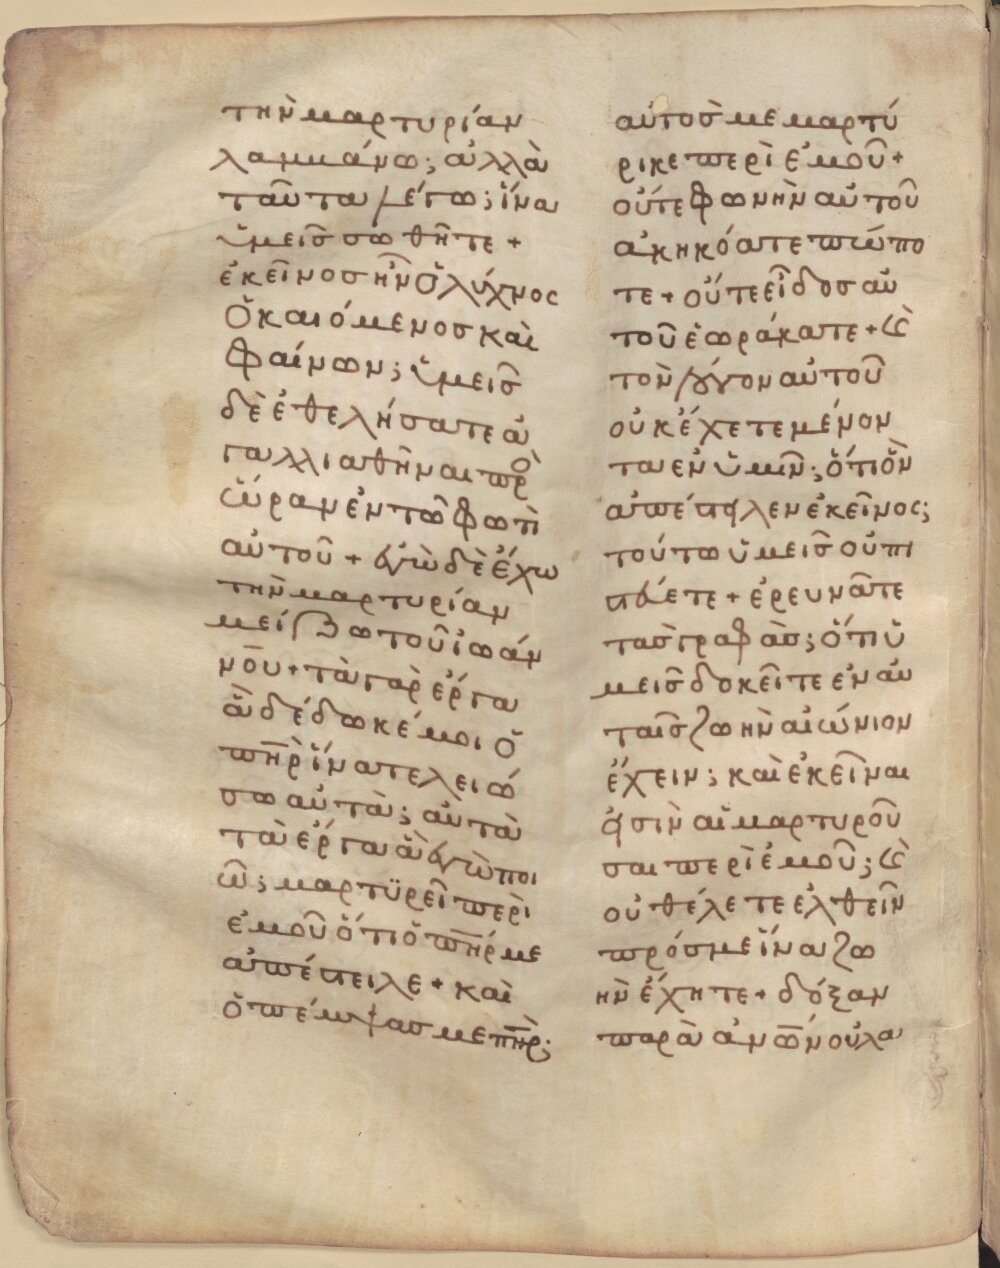 τὴν μαρτυρίαν
λαμμάνω; ἀλλὰ
ταῦτα λέγω; ἵνα
ὑμεῖς σωθῆτε +
ἐκεῖνος ἦν ὁ λύχνος
ὁ καιόμενος καὶ
φαίνων; ὑμεῖς
δὲ ἐθελήσατε ἀ
γαλλιαθῆναι πρὸ
ὥραν ἐν τῶ φωτὶ
αὐτοῦ + ἐγὼ δὲ ἔχω
τὴν μαρτυρίαν
μείζω τοῦ ἰωάν
νου + τὰ γὰρ ἔργα
ἃ δέδωκέ μοι ὁ
πηρ ἵνα τελειώ
σω αὐτὰ; αὐτὰ
τὰ ἔργα ἃ ἐγὼ ποι
ῶ; μαρτϋρεῖ περὶ
ἐμοῦ ὅτι ὁ πηρ με
ἀπέστειλε + καὶ
ὁ πέμψας με πηρ;
αὐτὸς με μαρτύ
ρικε περὶ ἐμοῦ +
οὔτε φωνὴν αὐτοῦ
ἀκηκόατε πώπο
τε + οὔτε εἶδος αὐ
τοῦ ἑωράκατε + καὶ
τὸν λόγον αὐτοῦ
οὐκ ἔχετε μένον
τα ἐν ὑμῖν; ὅτι ὃν
ἀπέστειλεν ἐκεῖνος;
τούτω ὑμεῖς οὐ πι
στεύετε + ἐρευνᾶτε
τὰς γραφὰς; ὅτι ὑ
μεῖς δοκεῖτε ἐν αὐ
ταῖς ζωὴν αἰώνιον
ἔχειν; καὶ ἐκεῖναι
εἰσὶν αἱ μαρτυροῦ
σαι περὶ ἐμοῦ; καὶ
οὐ θέλετε ἐλθεῖν
πρός με ἵνα ζω
ὴν ἔχητε + δόξαν
παρὰ ἀνων οὐ λα